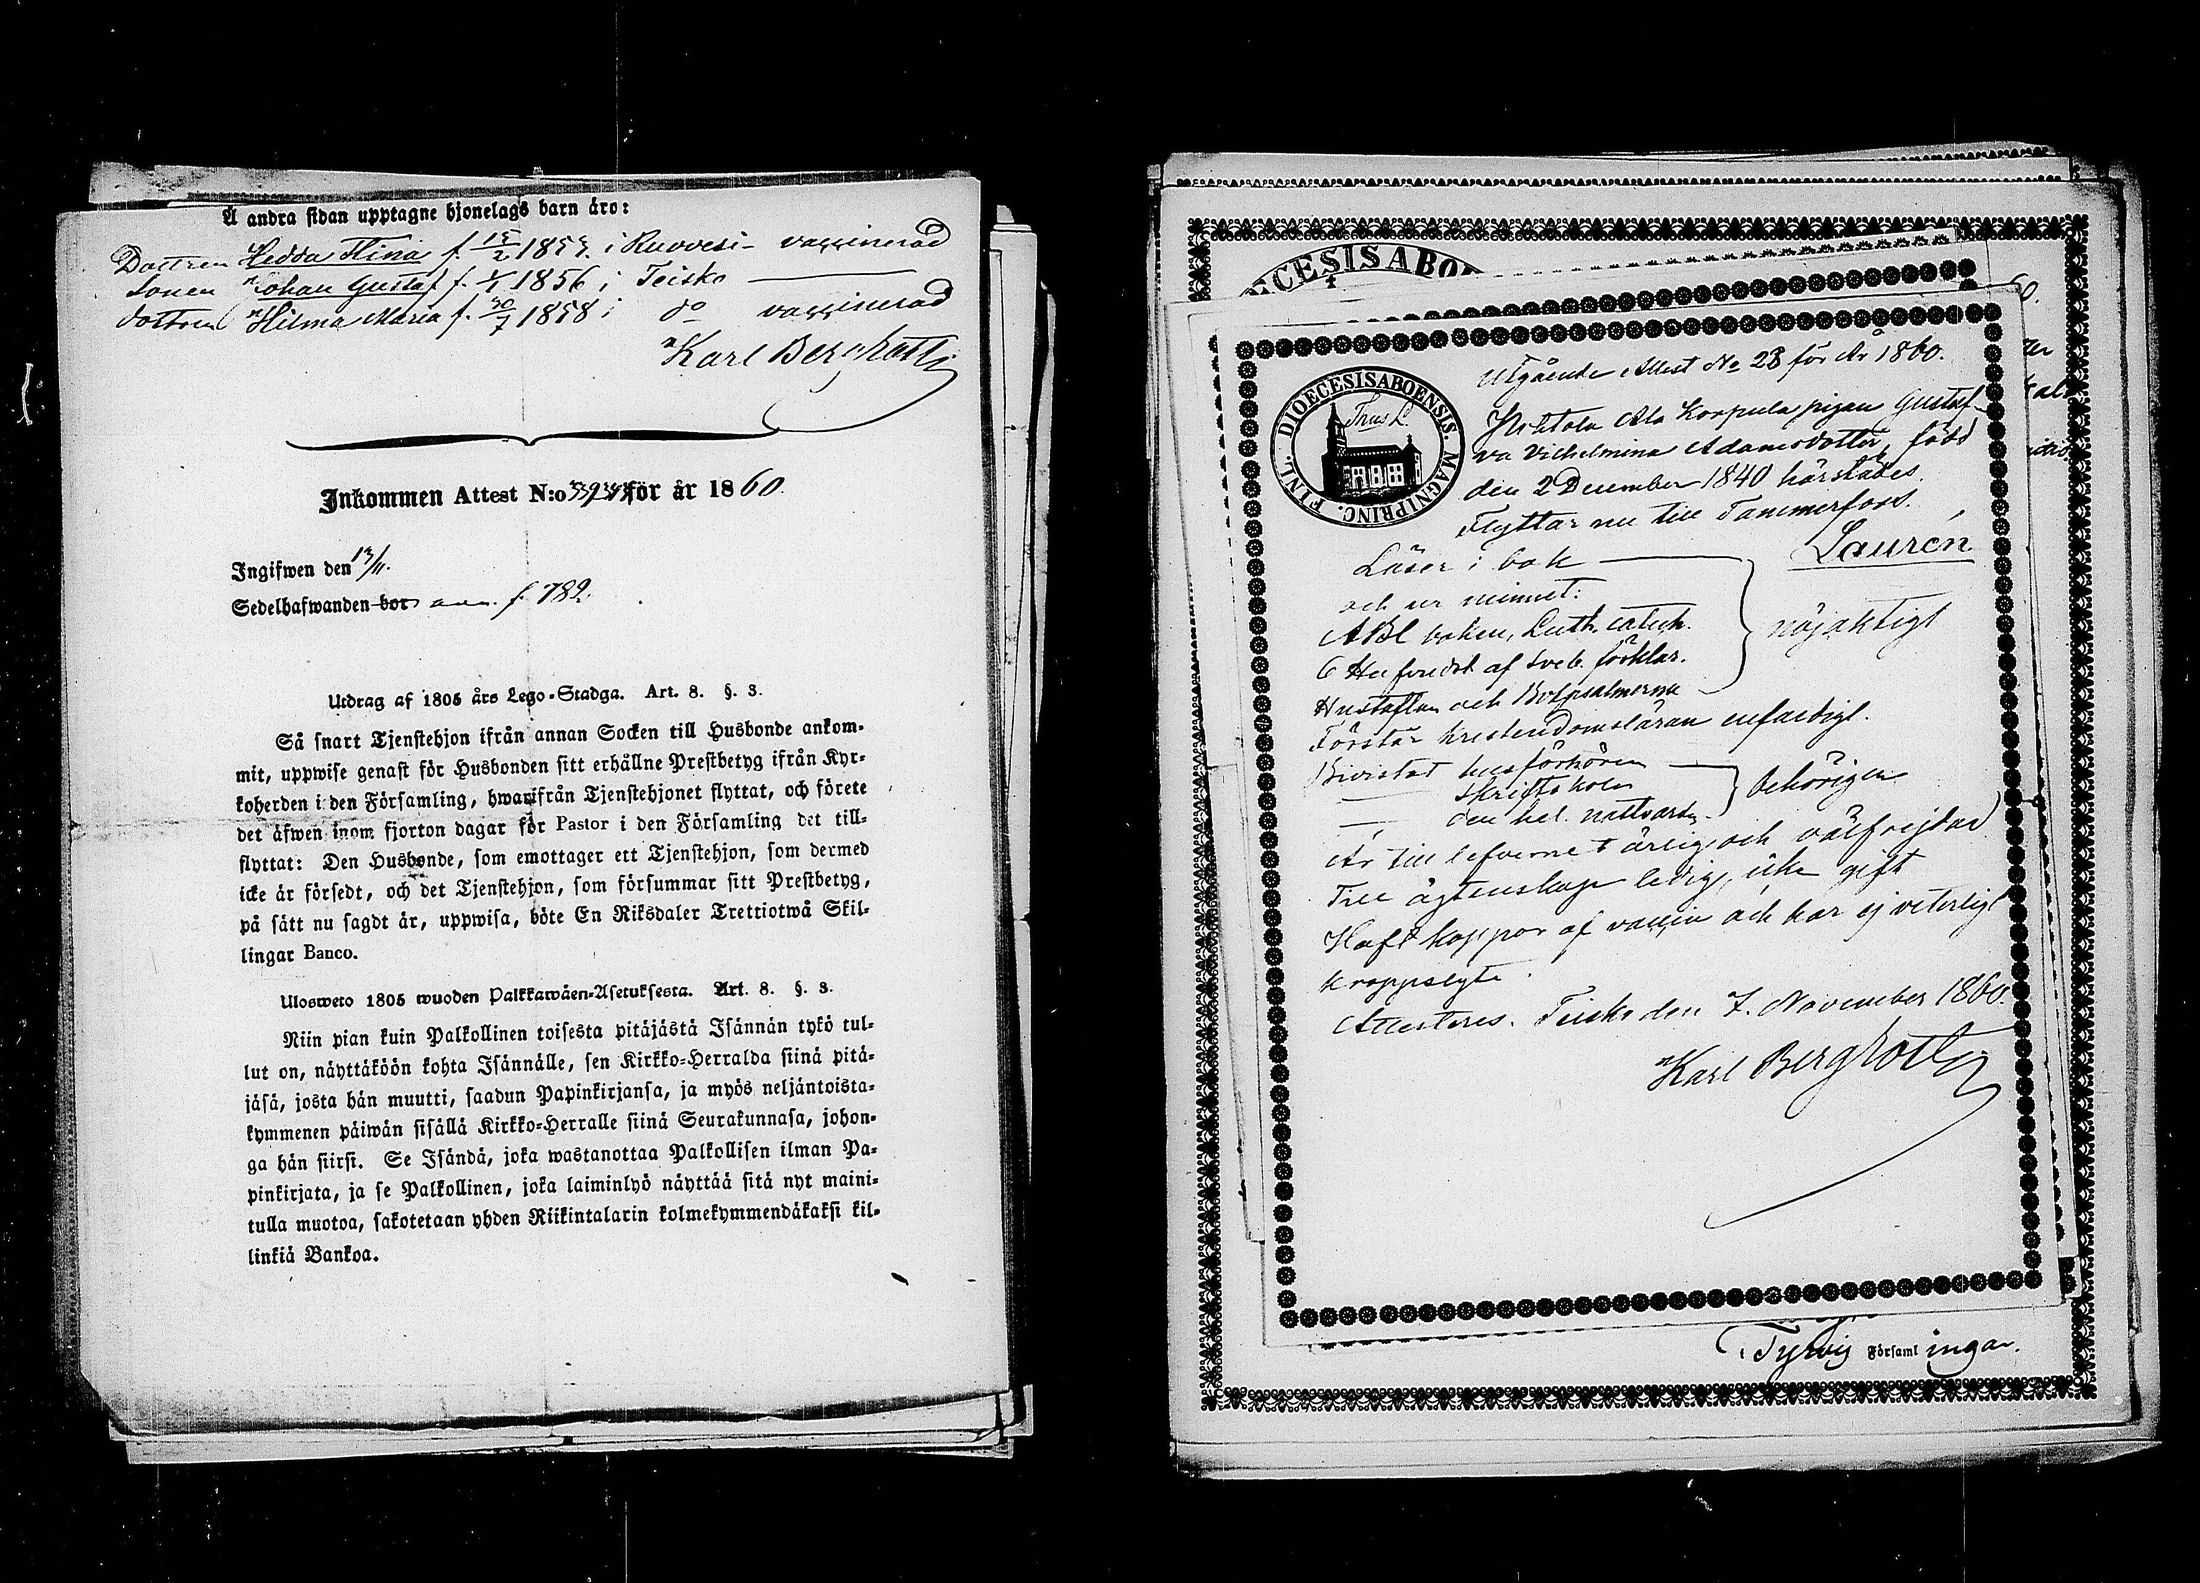 Å andra sidan upptagne hjonelags barn äro:
Dottren Hedda Stina f. 15/2 1853 i Ruovesi - vaccinerad
Sonen Johan Gustaf f. 1/1 1856 i Teisko
dottren Hilma Maria f. 30/7 1858 i do vaccinerad
Karl Bergroth
Inkommen Attest N:o för år 1860.
Ingifwen den 13/11.
Sedelhafwanden bor ann. f. 782.
Utdrag af 1805 års Lego-Stadga. Art. 8. §. 3.
Så snart Tjenstehjon ifrån annan Socken till Husbonde ankom-
mit, uppwise genast för Husbonden sitt erhållne Prestbetyg ifrån Kyr-
koherden i den Församling, hwarifrån Tjenstehjonet flyttat, och förete
det äfwen inom fjorton dagar för Pastor i den Församling det till-
flyttat: Den Husbonde, som emottager ett Tjenstehjon, som dermed
icke är försedt, och det Tjenstehjon, som försummar sitt Prestbetyg,
på sätt nu sagdt är, uppwisa, böte En Riksdaler Trettiotwå Skil-
lingar Banco.
Ulosweto 1805 wuoden Palkkawäen-Asetuksesta. Art. 8. §. 3.
Niin pian kuin Palkollinen toisesta pitäjästä Isännän tykö tul-
lut on, näyttäköön kohta Isännälle, sen Kirkko-Herralda siinä pitä-
jäsä, josta hän muutti, saadun Papinkirjansa, ja myös neljäntoista-
kymmenen päiwän sisällä Kirkko-Herralle siinä Seurakunnasa, johon-
ga hän siirsi. Se Isändä, joka wastanottaa Palkollisen ilman Pa-
pinkirjata, ja se Palkollinen, joka laiminlyö näyttää sitä nyt maini-
tulla muotoa, sakotetaan yhden Riikintalarin kolmekymmendäkaksi kil-
linkiä Bankoa.
Utgående Attest No 28 för År 1860.
DIOECESIS ABOENSIS. MAGNI PRINC. FINL.
Ala Korpula pigan Gustaf-
va Vilhelmina Adamsdotter, född
den 2 December 1840 härstädes.
Flyttar nu till Tammerfors.
Laurén
Läser i bok
och ur minnet:
ABC boken, Luth. catech.
6 Hufvudst af Sveb. förklar. nöjaktigt
Hustaflan och Botpsalmerna
Förstår kristendomsläran enfaldigt.
Bivistat husförhören
skriftskolen behörigen
den hel. nattvarden
Är till lefvernet ärlig och välfrejdad
Till ägtenskap ledig, icke gift
Haft koppor af vaccin och har ej veterligt
kroppslyte.
Attesteres. Teisko den 7. November 1860.
Karl Bergroth
Tyrvis Församlingar.